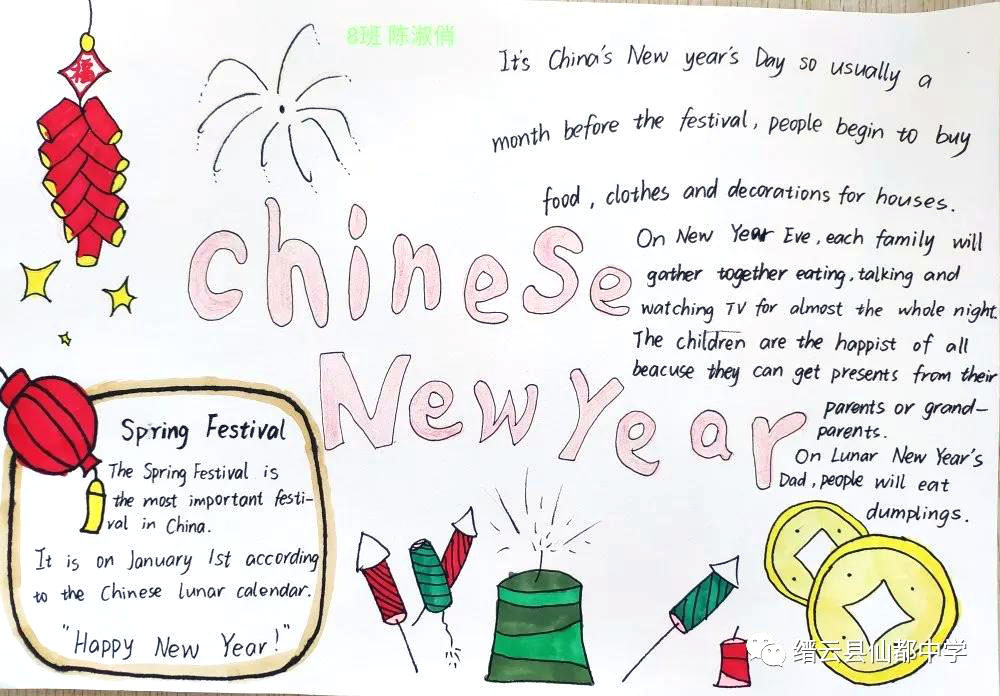 8班 陈淑俏
福
It's China's New year's Day so usually a
month before the festival, people begin to buy
food, clothes and decorations for houses.
On New Year Eve, each family will
gather together eating, talking and
watching TV for almost the whole night.
The children are the happist of all
beacuse they can get presents from their
parents or grand-
parents.
On Lunar New Year's
Dad, people will eat
dumplings.
Chinese
New Year
Spring Festival
The Spring Festival is
the most important festi-
val in China.
It is on January 1st according
to the Chinese lunar calendar.
"Happy New Year!"
缙云县仙都中学